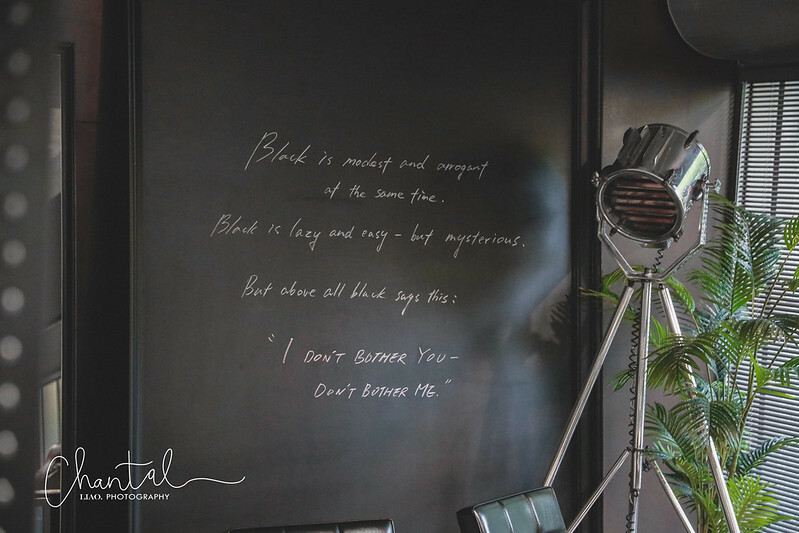 Black is modest and arrogant
at the same time.
Black is lazy and easy – but mysterious.
But above all black says this:
"I DON'T BOTHER YOU –
DON'T BOTHER ME."
Chantal
LIAO. PHOTOGRAPHY